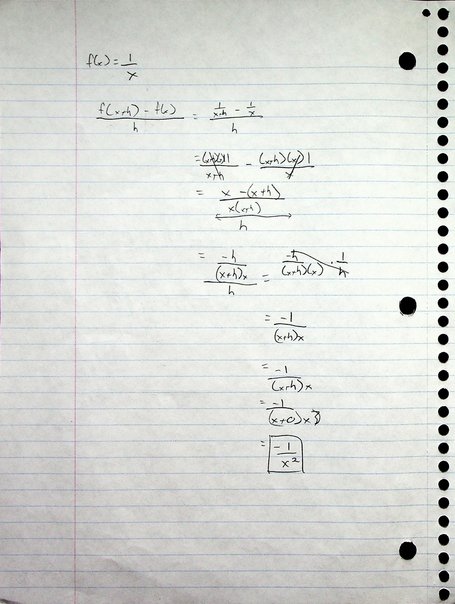 f(x) = 1/x
(f(x+h) - f(x))/h = (1/(x+h) - 1/x)/h
= (x+h)(x)1/(x+h) - (x+h)(x)1/x
= ((x - (x+h))/(x(x+h)))/h
= (-h/((x+h)x))/h = -h/((x+h)(x)) · 1/h
= -1/((x+h)x)
= -1/((x+h)x)
= -1/((x+0)x)
= -1/x²